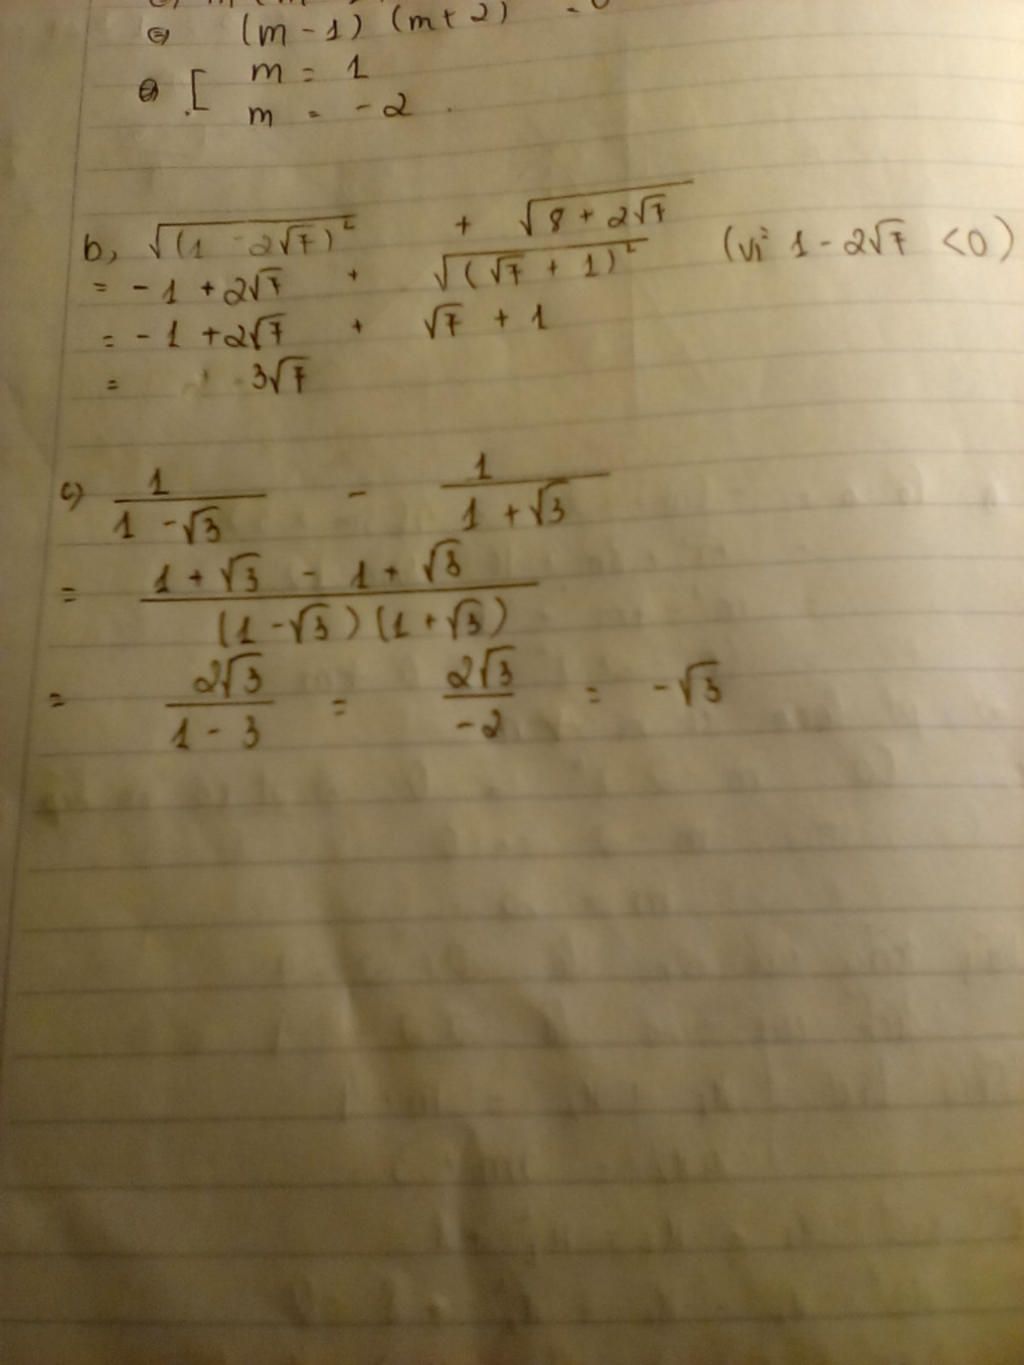 ⇔ (m - 1) (m + 2) = 0
⇔ [ m = 1
m = -2.
b, √(1 - 2√7)² + √8 + 2√7
= -1 + 2√7 + √(√7 + 1)² (vì 1 - 2√7 < 0)
= -1 + 2√7 + √7 + 1
= 3√7
c) 1/(1 - √3) - 1/(1 + √3)
= (1 + √3 - 1 + √3)/((1 - √3)(1 + √3))
= 2√3/(1 - 3) = 2√3/-2 = -√3